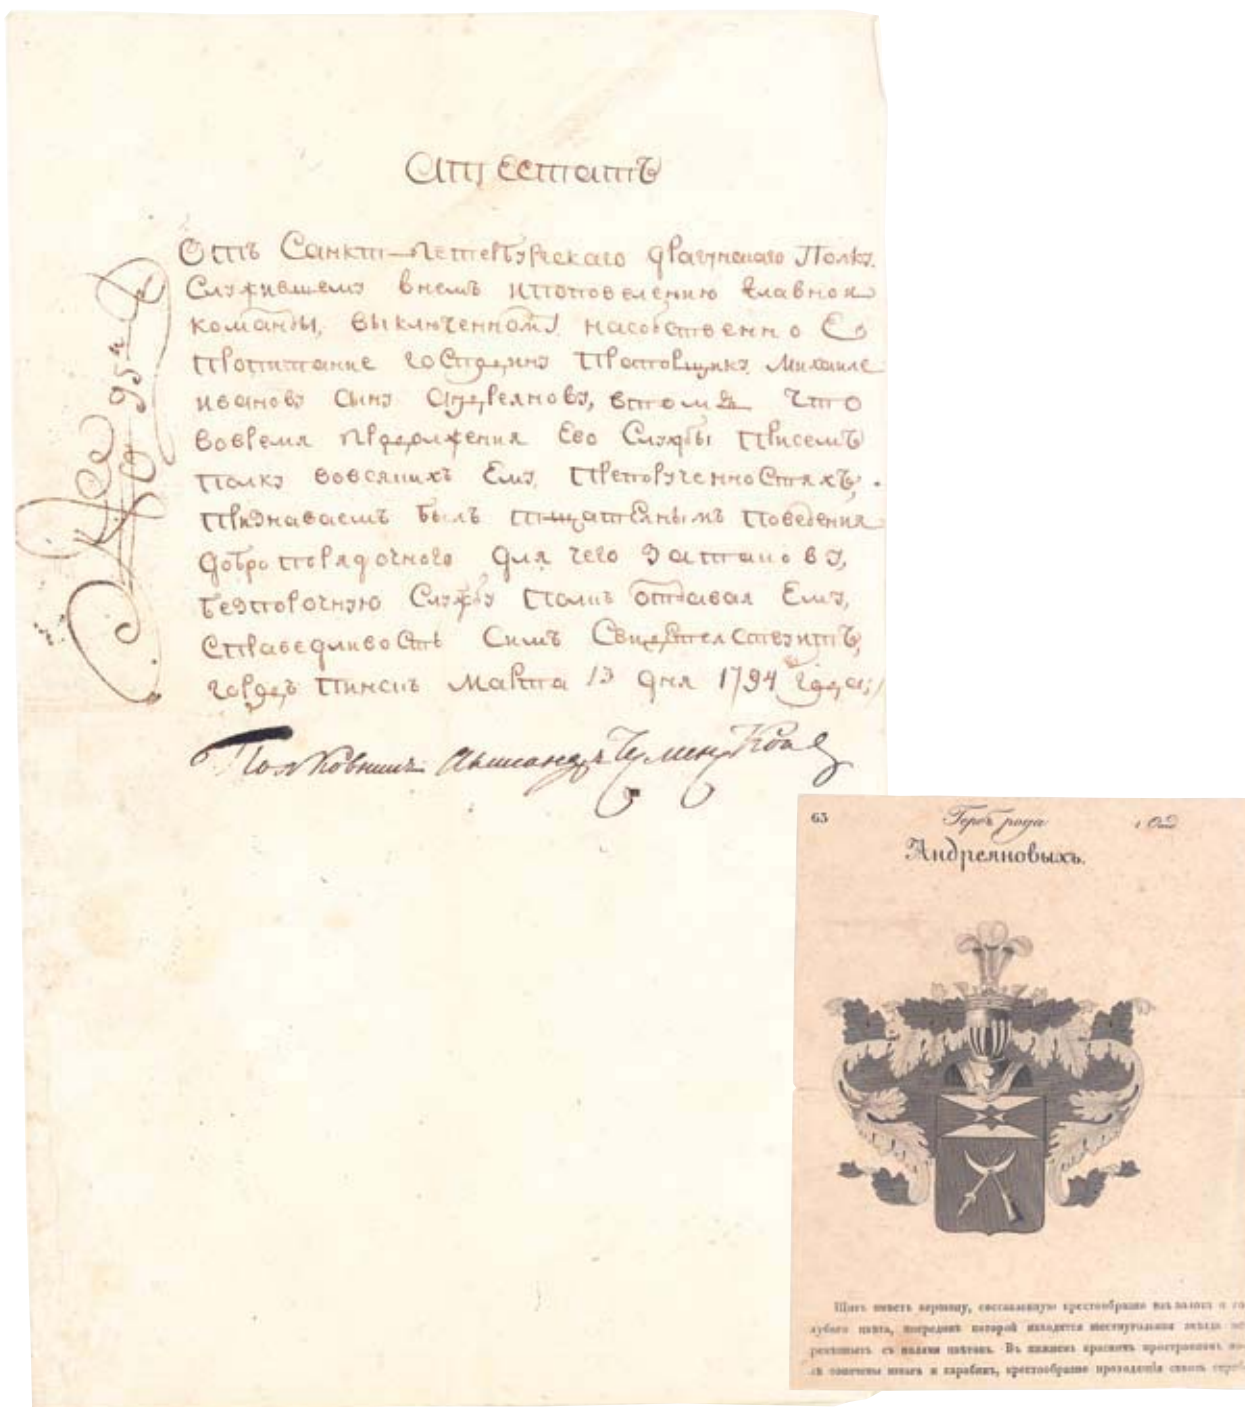 Аттестатъ
Отъ Санкт-Петербургскаго драгунскаго Полку
Служившему внемъ ипоповелению главнои
команды, выключенному насобственно Ео
пропитание господину Прапорщику Михаиле
иванову сыну Андреянову, втомъ что
вовремя продолжения Ево Службы присемъ
полку вовсякихъ Ему препорученностяхъ,
признаваемъ былъ тщательнымъ поведения
добропорядочного для чего Затакову,
безпорочную Службу Полкъ отдавая Ему,
справедливость Симъ Свидетельствуитъ,
городъ Пинскъ Марта 13 дня 1794 года
Полковникъ
№ 95
63
Гербъ рода
Андреяновыхъ.
Щитъ имѣетъ вершину, составленную крестообразно изъ золота и го
лубаго цвѣта, посрединѣ которой находится шестиугольная звѣзда пе
ремѣнныхъ съ полями цвѣтовъ. Въ нижнемъ красномъ пространномъ по
лѣ означены шпага и карабинъ, крестообразно проходящія сквозь сереб